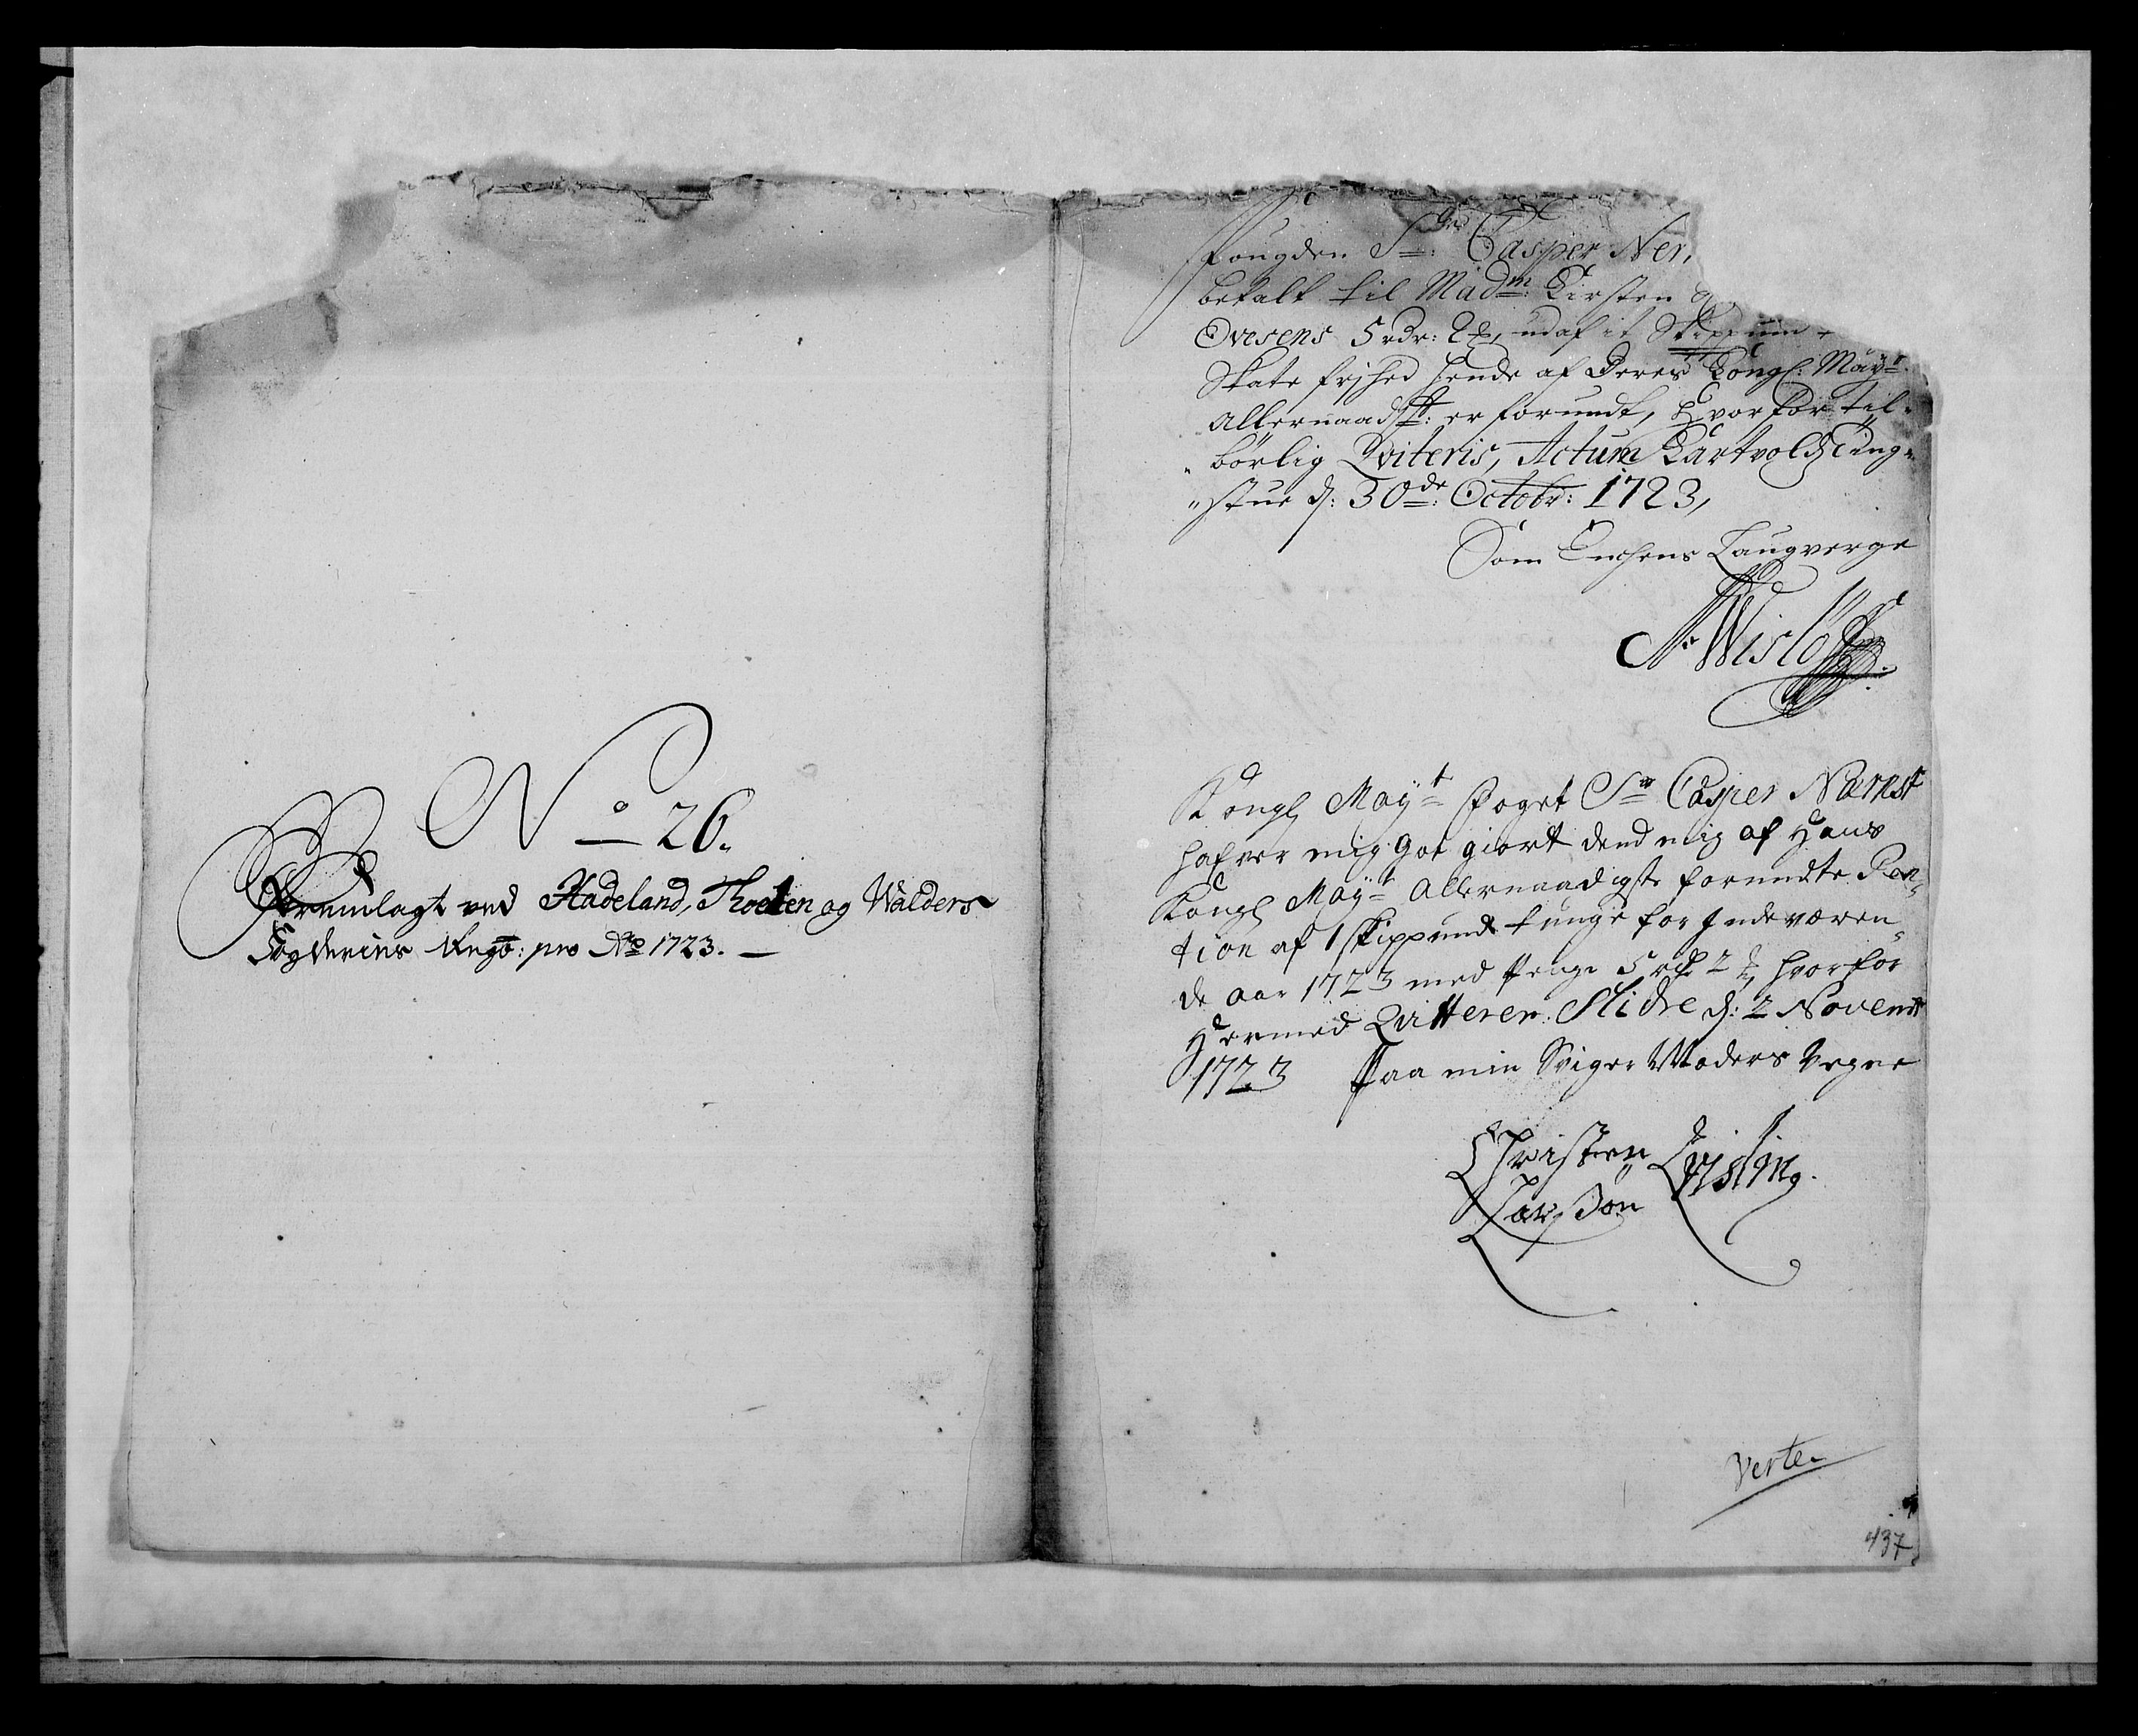 No 26.
Fremlagt ved Hadeland, Thoten og Walders
Fogderies Regn: pro Ao 1723.
Fougden Sr: Casper Ner
betalt til Madm: Kirsten
Ovesens 5 rdr: 2 ß, udaf it Skippun
Skate frihed hende af Deres Kongl: Mayt
allernaadst: er forundt, Hvorfor til„
„börlig Qviteris, Actum Kartvold Ting„
„stue d: 30de: Octobr: 1723,
Som Enchens Laugverge
N: Wislöff
Kongl Mayt Foget Sr Casper Nærnst
hafver mig got giort dend mig af Hans
Kongl Mayt allernaadigste forundte Pen„
tion af 1 skippund tunge for Indeværen„
de aar 1723 med penge 5 rdr 2 ß, hvorfor
Hermed Qvitterer: Slidre d: 2 Novemb
1723 Paa min Sviger Moders Vegne
Christen Qvisling
Larsøn
Verte.
437